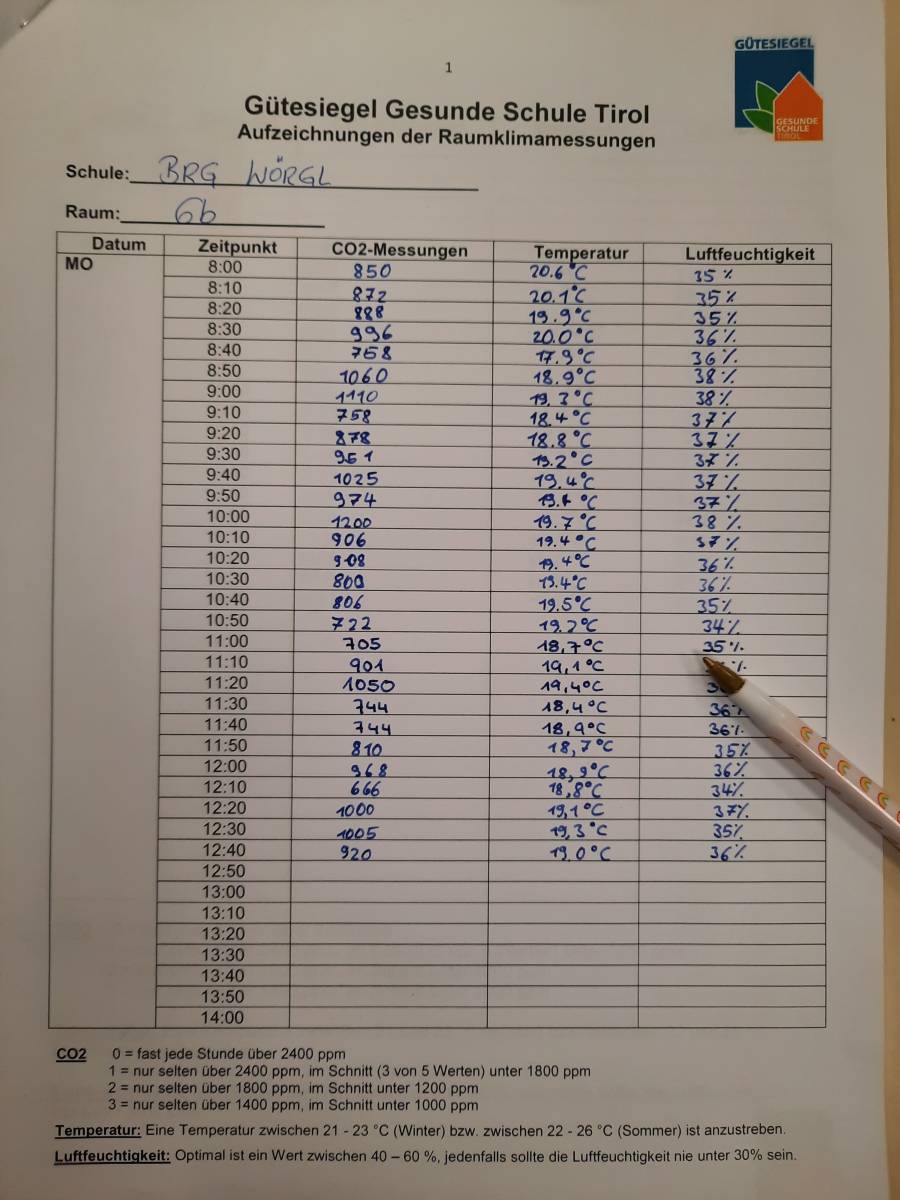 GÜTESIEGEL
GESUNDE
SCHULE
TIROL
1
Gütesiegel Gesunde Schule Tirol
Aufzeichnungen der Raumklimamessungen
Schule: BRG WÖRGL
Raum: 6b
Datum Zeitpunkt CO2-Messungen Temperatur Luftfeuchtigkeit
MO 8:00 850 20.6°C 35%
8:10 872 20.1°C 35%
8:20 888 19.9°C 35%
8:30 996 20.0°C 36%
8:40 758 17.9°C 36%
8:50 1060 18.9°C 38%
9:00 1110 19.3°C 38%
9:10 758 18.4°C 37%
9:20 878 18.8°C 37%
9:30 951 19.2°C 37%
9:40 1025 19.4°C 37%
9:50 974 37%
10:00 1200 19.7°C 38%
10:10 906 19.4°C 37%
10:20 908 19.4°C 36%
10:30 800 19.4°C 36%
10:40 806 19.5°C 35%
10:50 722 19.2°C 34%
11:00 705 18,7°C 35%
11:10 901 19,1°C
11:20 1050 19,4°C
11:30 744 18,4°C 36%
11:40 744 18,9°C 36%
11:50 810 18,7°C 35%
12:00 968 18,9°C 36%
12:10 666 18,8°C 34%
12:20 1000 19,1°C 37%
12:30 1005 19,3°C 35%
12:40 920 19.0°C 36%
12:50
13:00
13:10
13:20
13:30
13:40
13:50
14:00
CO2 0 = fast jede Stunde über 2400 ppm
1 = nur selten über 2400 ppm, im Schnitt (3 von 5 Werten) unter 1800 ppm
2 = nur selten über 1800 ppm, im Schnitt unter 1200 ppm
3 = nur selten über 1400 ppm, im Schnitt unter 1000 ppm
Temperatur: Eine Temperatur zwischen 21 - 23 °C (Winter) bzw. zwischen 22 - 26 °C (Sommer) ist anzustreben.
Luftfeuchtigkeit: Optimal ist ein Wert zwischen 40 – 60 %, jedenfalls sollte die Luftfeuchtigkeit nie unter 30% sein.